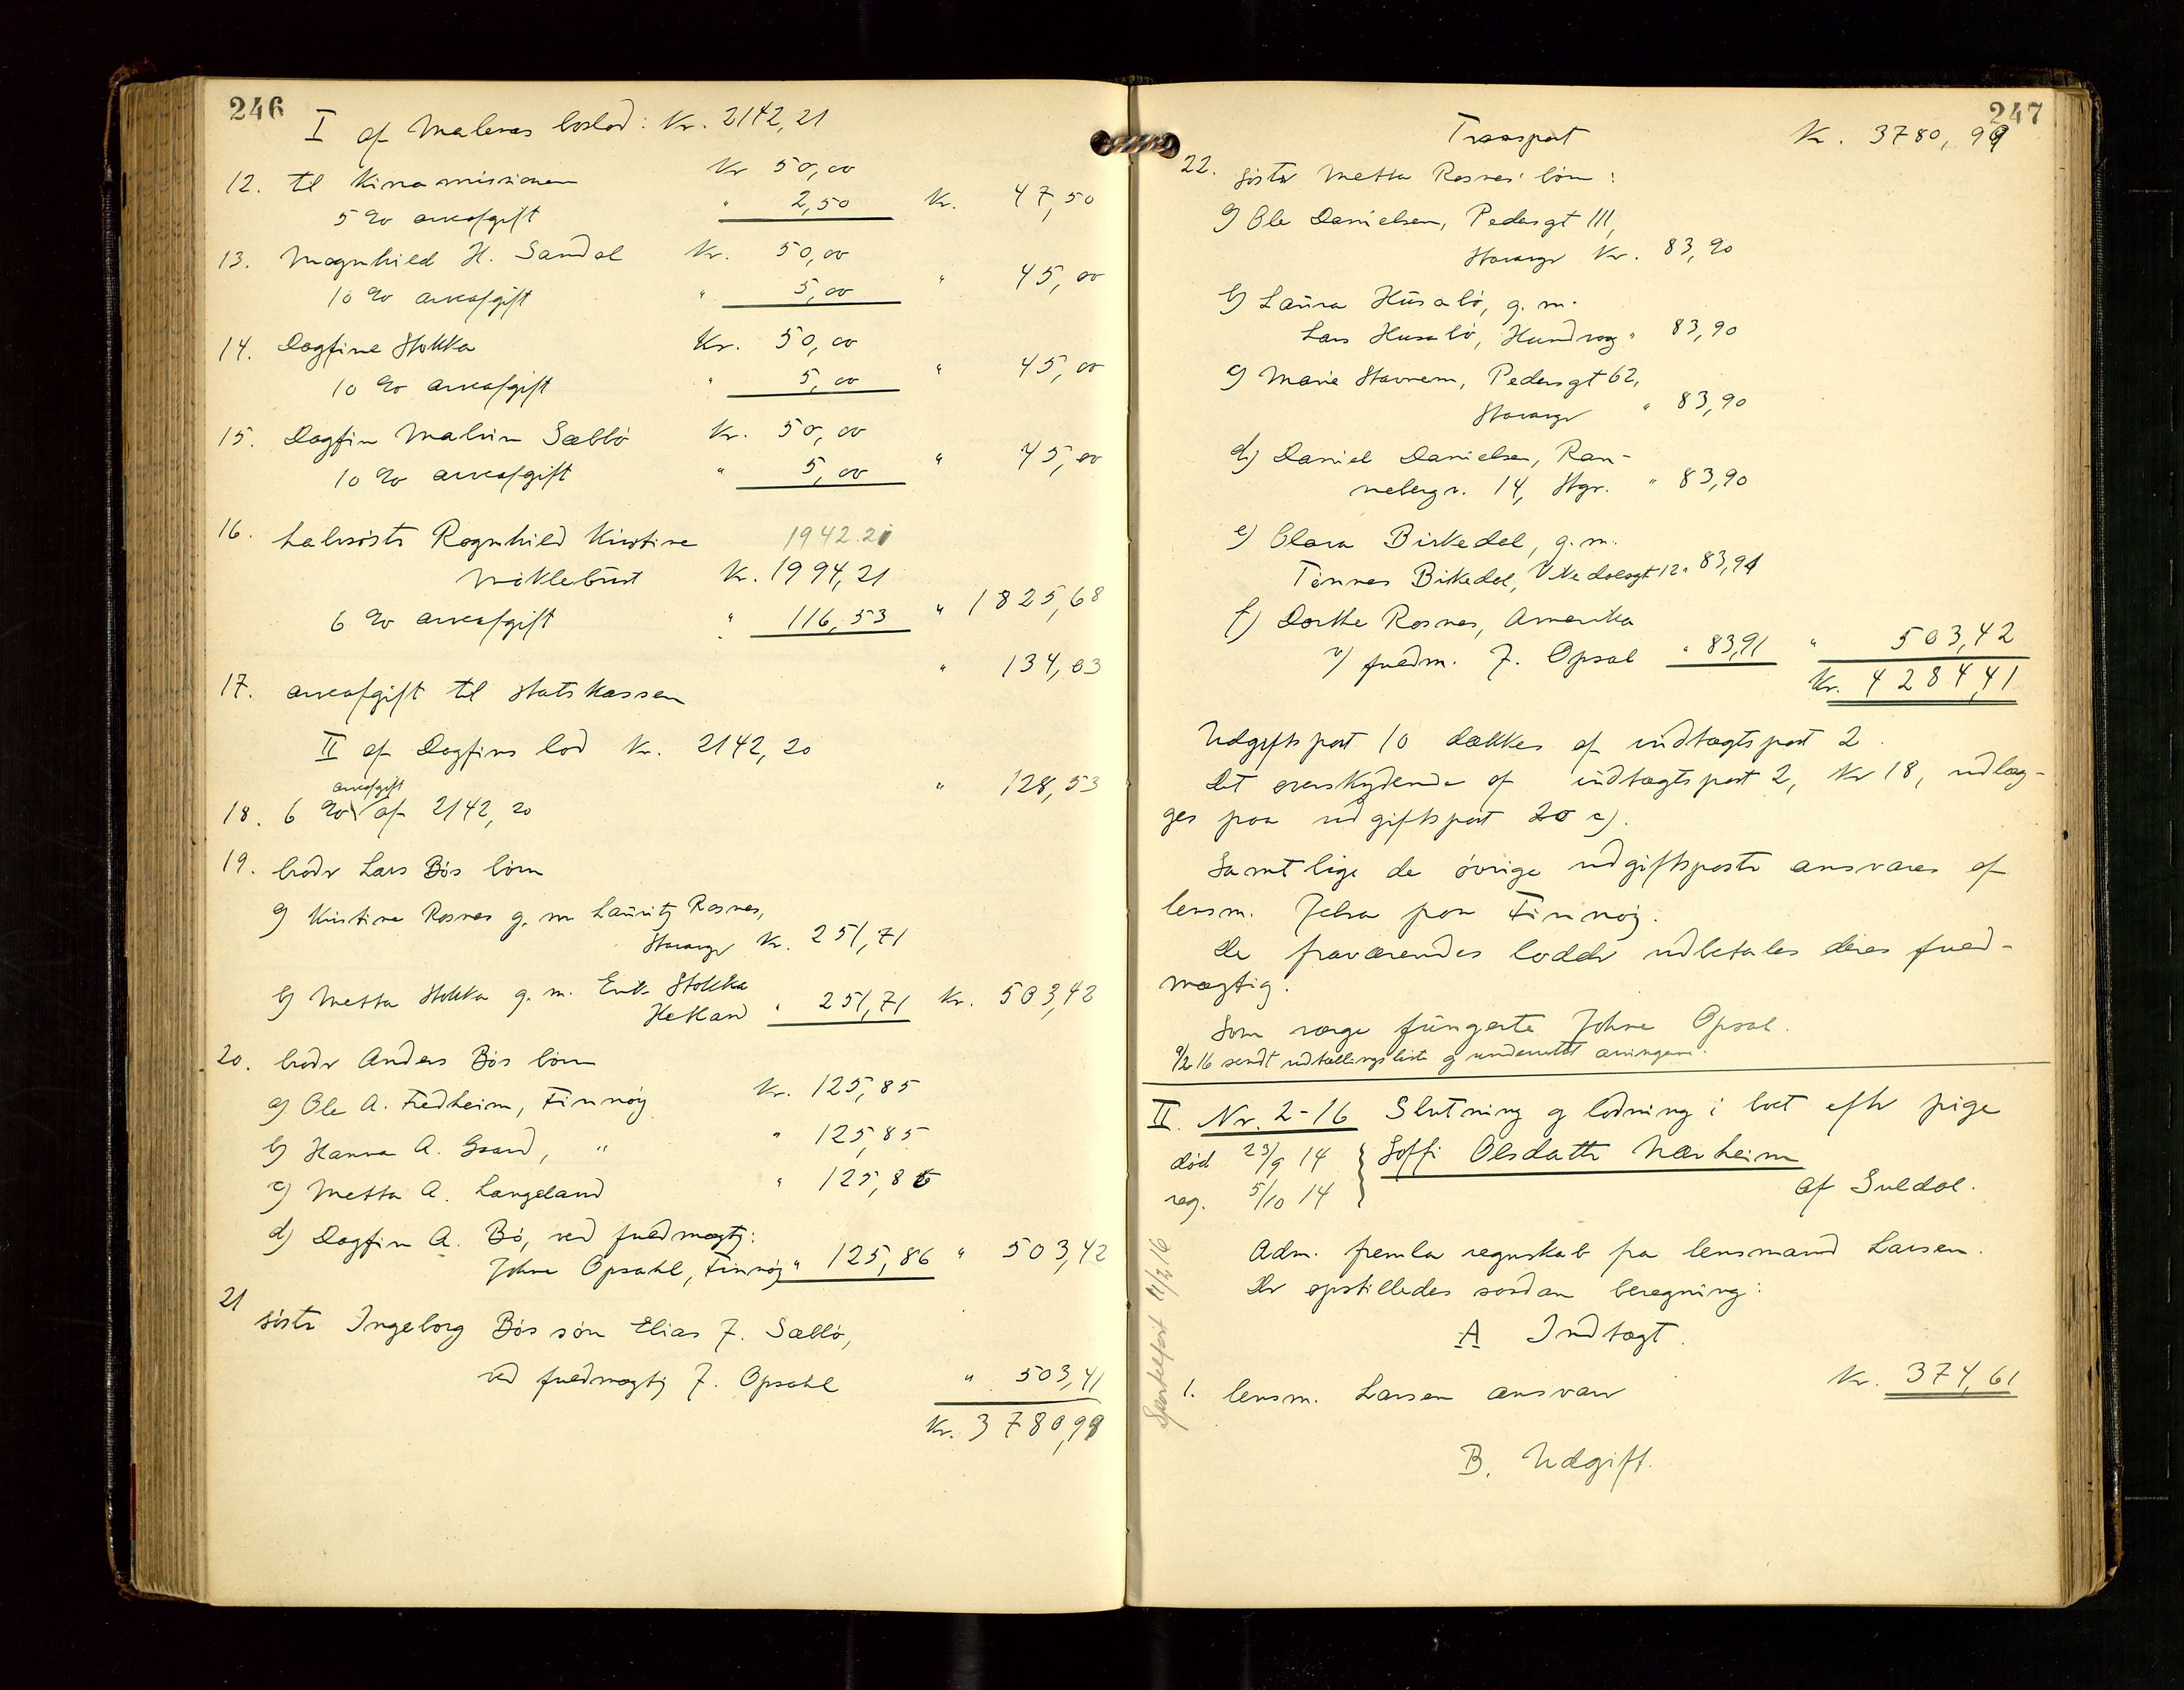 246
I af Malenas boslod: Kr. 2142,21
12. til Kinamissionen Kr 50,00
5 % arveafgift " 2,50 Kr. 47,50
13. Magnhild H. Sandal Kr. 50,00
10 % arveafgift " 5,00 " 45,00
14. Dagfine Stokka Kr. 50,00
10 % arveafgift " 5,00 " 45,00
15. Dagfin Malvin Sæbbö Kr. 50,00
10 % arveafgift " 5,00 " 45,00
16. halvsöster Ragnhild Kirstine 1942.21
Möklebust Kr. 1994,21
6 % arveafgift " 116,53 " 1825,68
17. arveafgift til Statskassen " 134,03
II af Dagfins lod Kr. 2142,20
arveafgift
18. 6 % af 2142,20 " 128,53
19. broder Lars Bös börn
a) Kirstine Rosnes g. m Lauritz Rosnes,
Stavanger Kr. 251,71
b) Metta Stokka g. m. Erik Stokka
Hetland " 251,71 Kr. 503,42
20. broder Anders Bös börn
a) Ole A. Fredheim, Finnöy Kr. 125,85
b) Hanna A. Gaard, " " 125,85
c) Metta A. Langeland " 125,86
d) Dagfin A. Bö, ved fuldmægtig:
Johne Opsahl, Finnöy " 125,86 " 503,42
21 söster Ingeborg Bös sön Elias J. Sæbbö,
ved fuldmægtig J. Opsahl " 503,41
Kr. 3780,99
247
Transport Kr. 3780,99
22. söster Metta Rosnes' börn:
a) Ole Danielsen, Pedersgt 111,
Stavanger Kr. 83,90
b) Laura Husabö, g. m.
Lars Husabö, Hundvaag " 83,90
c) Marie Stavnem, Pedersgt 62,
Stavanger " 83,90
d) Daniel Danielsen, Ran-
nebergr. 14, Stgr. " 83,90
e) Clara Birkedal, g. m.
Tönnes Birkedal, Vikedalsgt 12 " 83,91
f) Dorthe Rosnes, Amerika
v) fuldm. J. Opsal " 83,91 " 503,42
Kr. 4284,41
Udgiftspost 10 dækkes af indtægtspost 2.
Det overskydende af indtægtspost 2, Kr 18, udlæg-
ges paa udgiftspost 20 a).
Samtlige de övrige udgiftsposter ansvares af
lensm. Jelsa paa Finnöy.
De fraværendes lodder udbetales deres fuld-
mægtig.
Som værge fungerte Johne Opsal.
9/2 16 sendt udtællingsliste og underrettet arvingene.
II. Nr. 2-16 Slutning og lodning i boet efter pige
död 23/9 14 Soffi Olsdatter Nærheim
reg. 5/10 14 af Suldal.
Adm. fremla regnskab fra lensmand Larsen.
Der opstilledes saadan beregning:
A Indtægt.
1. lensm. Larsen ansvarer Kr. 374,61
B. Udgift.